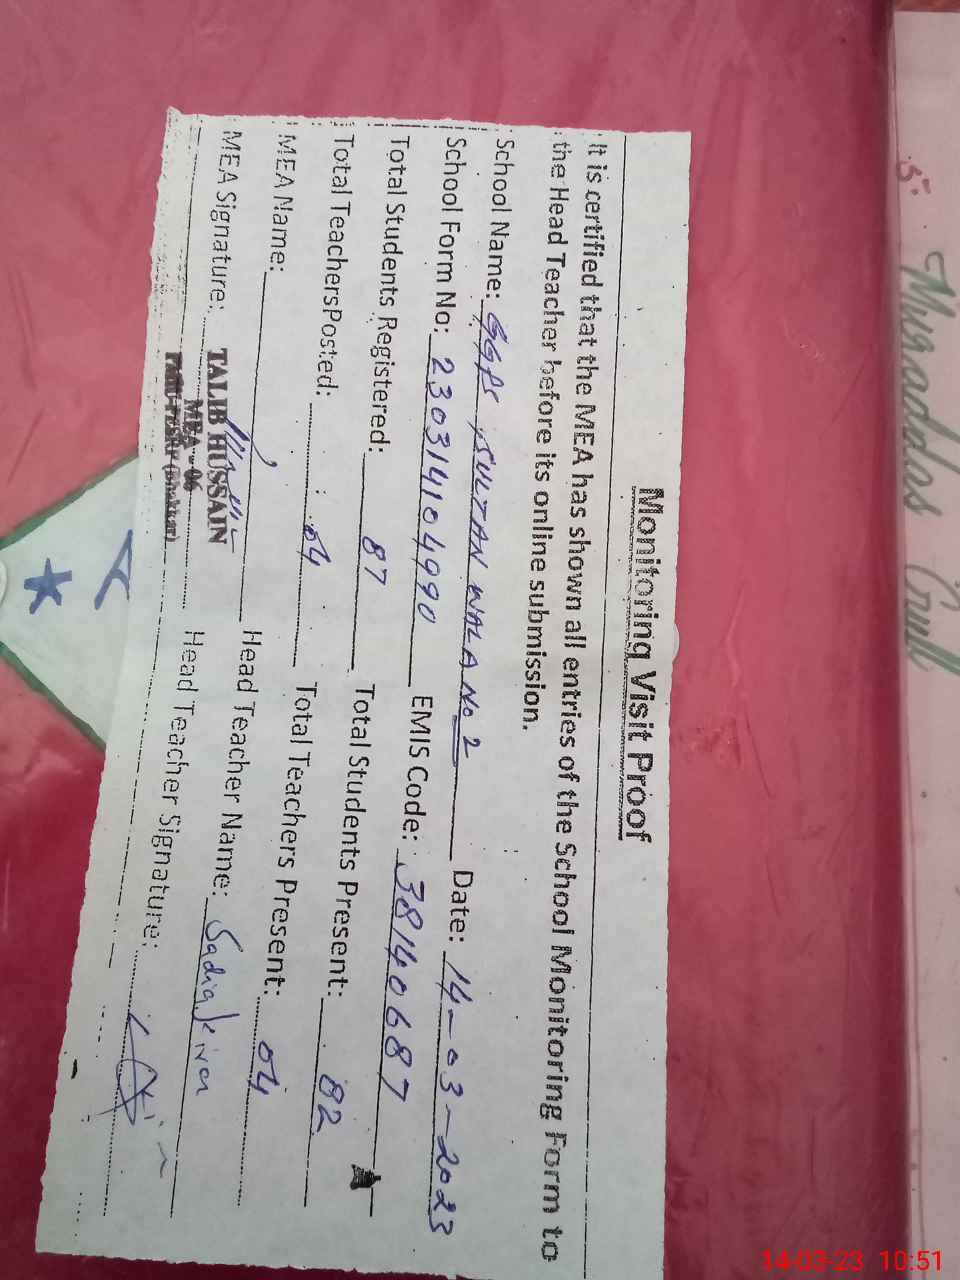 Monitoring Visit Proof
It is certified that the MEA has shown all entries of the School Monitoring Form to
the Head Teacher before its online submission.
School Name: GGPS SULTAN WALA No 2 Date: 14-03-2023
School Form No: 230314104990 EMIS Code: 38140687
Total Students Registered: 87 Total Students Present: 82
Total TeachersPosted: 04 Total Teachers Present: 04
MEA Name: Head Teacher Name: Sadia
MEA Signature: Head Teacher Signature:
TALIB HUSSAIN
MEA - 06
(Bhakkar)
5:
14-03-23 10:51